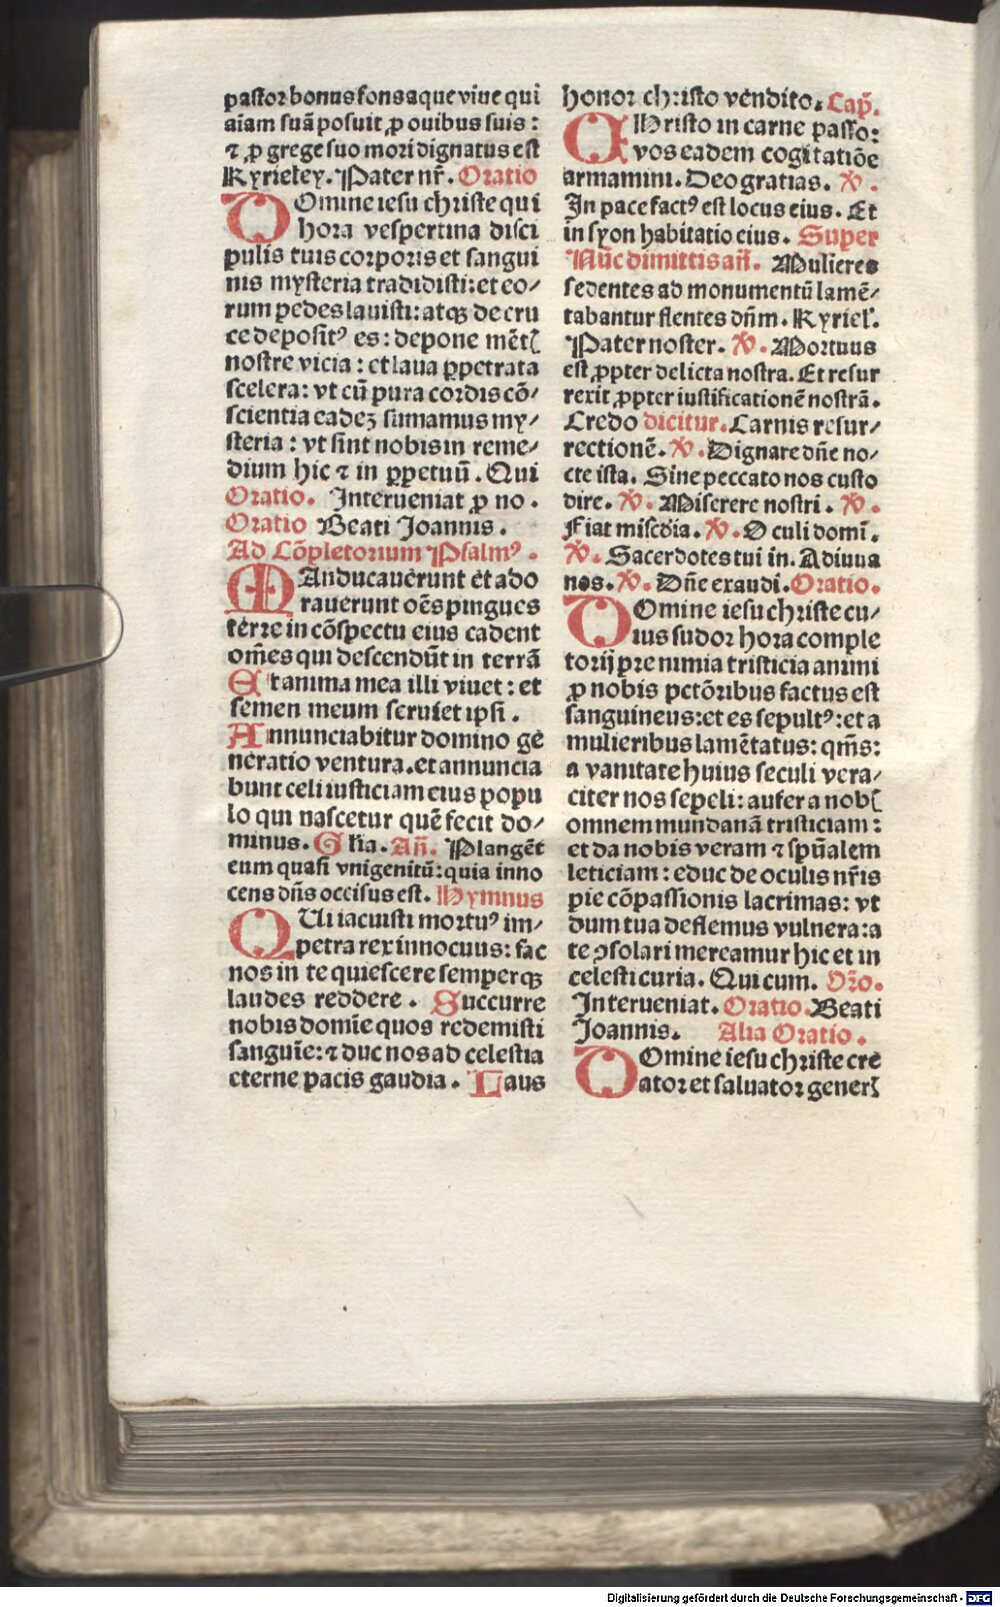 pastor bonus fons aque viue qui
aīam suā posuit ꝓ ouibus suis:
⁊ ꝓ grege suo mori dignatus est
Kyrieley. Pater nr̄. Oratio
DOmine iesu christe qui
hora vespertina disci
pulis tuis corporis et sangui
nis mysteria tradidisti: et eo/
rum pedes lauisti: atqꝫ de cru
ce deposit⁹ es: depone mēt(
nostre vicia: et laua ꝑpetrata
scelera: vt cū pura cordis cō/
scientia eadeꝫ sumamus my/
steria: vt sint nobis in reme/
dium hic ⁊ in ꝑpetuū. Qui
Oratio. Interueniat ꝓ no.
Oratio Beati Joannis.
Ad Cōpletorium Psalm⁹.
MAnducauerunt et ado
rauerunt oēs pingues
terre in cōspectu eius cadent
om̄es qui descendūt in terrā
Et anima mea illi viuet: et
semen meum seruiet ipsi.
Annunciabitur domino ge
neratio ventura. et annuncia
bunt celi iusticiam eius popu
lo qui nascetur quē fecit do/
minus. Gl̄ia. Añ. Plangēt
eum quasi vnigenitū: quia inno
cens dn̄s occisus est. Hymnus
QUi iacuisti mortu⁹ im/
petra rex innocuus: fac
nos in te quiescere semperqꝫ
laudes reddere. Succurre
nobis domīe quos redemisti
sanguīe: ⁊ duc nos ad celestia
eterne pacis gaudia. Laus
honor christo vendito. Cap̄.
CHristo in carne passo:
vos eadem cogitatiōe
armamini. Deo gratias. ℣.
In pace fact⁹ est locus eius. Et
in syon habitatio eius. Super
Nūc dimittis añ. Mulieres
sedentes ad monumentū lamē/
tabantur flentes dn̄m. Kyriel̄.
Pater noster. ℣. Mortuus
est ꝓpter delicta nostra. Et resur
rexit ꝓpter iustificationē nostrā.
Credo dicitur. Carnis resur/
rectionē. ℣. Dignare dn̄e no/
cte ista. Sine peccato nos custo
dire. ℣. Miserere nostri. ℣.
Fiat misc̄dia. ℣. Oculi domī.
℣. Sacerdotes tui in. Adiuua
nos. ℣. Dn̄e exaudi. Oratio.
DOmine iesu christe cu/
ius sudor hora comple
torij pre nimia tristicia animi
ꝓ nobis pctōribus factus est
sanguineus: et es sepult⁹: et a
mulieribus lamētatus: qm̄s:
a vanitate huius seculi vera/
citer nos sepeli: aufer a nob(
omnem mundanā tristiciam:
et da nobis veram ⁊ spūalem
leticiam: educ de oculis nr̄is
pie cōpassionis lacrimas: vt
dum tua deflemus vulnera: a
te ꝯsolari mereamur hic et in
celesti curia. Qui cum. Or̄o.
Interueniat. Oratio. Beati
Joannis. Alia Oratio.
DOmine iesu christe cre
ator et saluator gener(
Digitalisierung gefördert durch die Deutsche Forschungsgemeinschaft - DFG